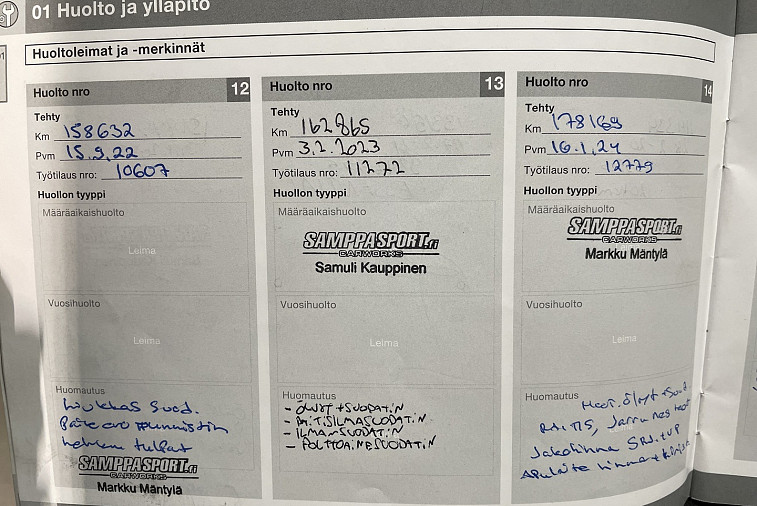 01 Huolto ja ylläpito
Huoltoleimat ja -merkinnät
Huolto nro 12
Tehty
Km 158632
Pvm 15.9.22
Työtilaus nro: 10607
Huollon tyyppi
Määräaikaishuolto
Leima
Vuosihuolto
Leima
Huomautus
hiukkas suod.
Paine ero tunnistin
hehkun tulpat
SAMPPASPORT.fi
CARWORKS
Markku Mäntylä
Huolto nro 13
Tehty
Km 162865
Pvm 3.2.2023
Työtilaus nro: 11272
Huollon tyyppi
Määräaikaishuolto
SAMPPASPORT.fi
CARWORKS
Samuli Kauppinen
Vuosihuolto
Leima
Huomautus
- ÖLJYT + SUODATIN
- RAITISILMASUODATIN
- ILMANSUODATIN
- POLTTOAINESUODATIN
Huolto nro 14
Tehty
Km 178169
Pvm 16.1.24
Työtilaus nro: 12779
Huollon tyyppi
Määräaikaishuolto
SAMPPASPORT.fi
CARWORKS
Markku Mäntylä
Vuosihuolto
Leima
Huomautus
Moot. öljyt + suod
Jarru nesteet
Jakohihna SRJ. + VP
Apulaite hihna +